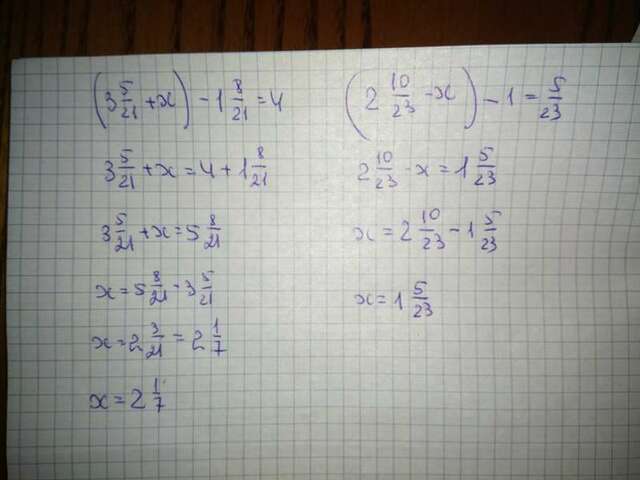 (3 5/21 + x) - 1 8/21 = 4
3 5/21 + x = 4 + 1 8/21
3 5/21 + x = 5 8/21
x = 5 8/21 - 3 5/21
x = 2 3/21 = 2 1/7
x = 2 1/7
(2 10/23 - x) - 1 = 5/23
2 10/23 - x = 1 5/23
x = 2 10/23 - 1 5/23
x = 1 5/23